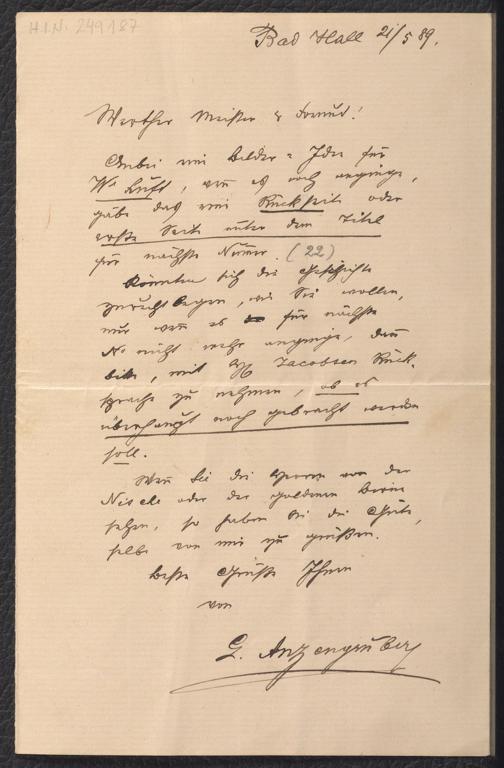 H.I.N. 249187
Bad Hall 21/5 89.
Werther Meister & Freund!
Anbei eine Bilder = Idee für
Wr Luft, wen es noch angienge,
gäbe das eine Rückseite oder
erste Seite unter dem Titel
für nächste Numer. (22)
Könnten sich die Geschichte
zurechtlegen, wie Sie wollen,
nur wen es für nächste
No nicht mehr angienge, dan
bitte, mit H Jacobsen Rück-
sprache zu nehmen, ob es
überhaupt noch gebracht werden
soll.
Wen Sie die Herren von der
oder der goldenen Birne
sehen, so haben Sie die Güte,
selbe von mir zu grüßen.
Beste Grüße Ihnen
von
L. Anzengruber